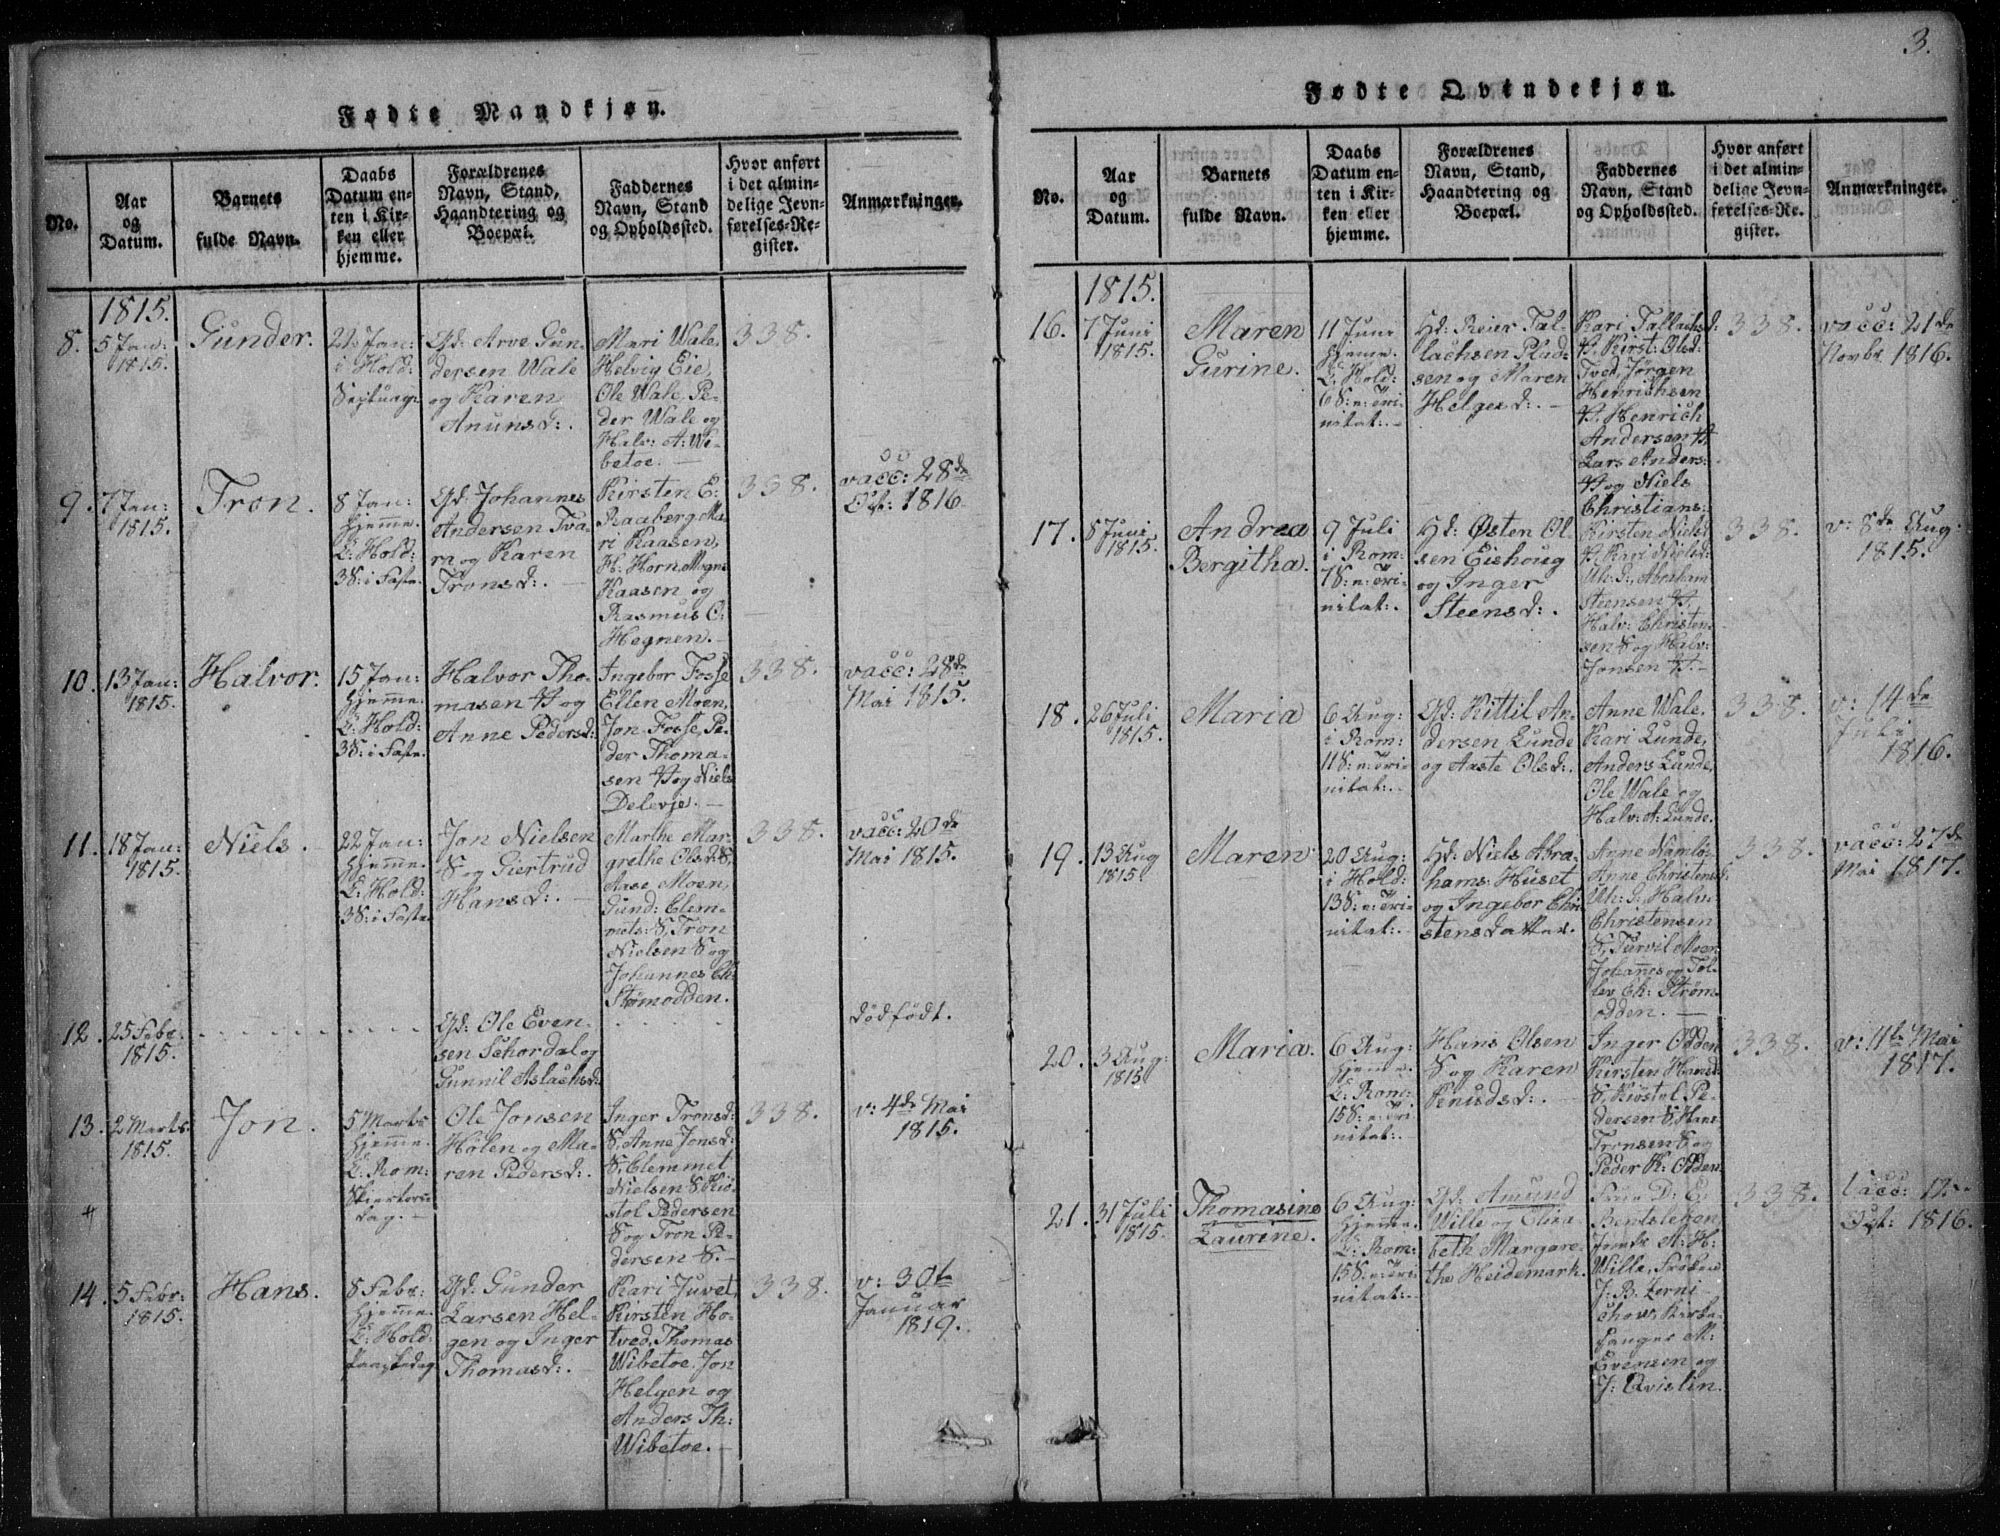 Fødte Mandkjøn.
No.
Aar
og
Datum.
Barnets
fulde Navn.
Daabs
Datum en-
ten i Kir-
ken eller
hjemme.
Forældrenes
Navn, Stand,
Haandtering og
Boepæl.
Faddernes
Navn, Stand
og Opholdssted.
Hvor anført
i det almin-
delige Jevn-
førelses-Re-
gister.
Anmærkninger.
1815.
8.
5 Jan:
1815.
Gunder.
22 Jan:
i Hold:
Septuag:
Gd: Arve Gun-
dersen Wale
og Karen
Anunsd:.
Mari Wale,
Helvig Eie,
Ole Wale, Pe-
der Wale og
Halv: A: We-
betoe. —
338.
9.
7 Jan:
1815.
Tron.
8 Jan:
hjemme.
C: Hold:
3 S: i Faste.
Gd: Johannes
Andersen Tva-
ra og Karen
Tronsd:. —
Kirsten E:
Raaberg, Ma-
ri Kaasen,
H: Horn, Mogns
Kaasen og
Rasmus O:
Hegnen. —
338.
vacc: 28de
Oct: 1816.
10.
13 Jan:
1815.
Halvor.
15 Jan:
hjemme.
C: Hold:
3 S: i Faste.
Halvor Tho-
masen H og
Anne Pedersd:
Ingebor Fosse
Ellen Moen,
Jon Fosse, Pe-
der Thoma-
sen H og Niels
Delevje. —
338.
vacc: 28de
Mai 1815.
11.
18 Jan:
1815.
Niels.
22 Jan:
hjemme.
C: Hold:
3 S: i Faste.
Jon Nielsen
S og Giertrud
Hansd:. —
Marthe Mar-
grethe Olsd: S,
Aase Moen,
Gund: Clem-
mets: S, Tron
Nielsen S og
Johannes Ch:
Strømodden.
338.
vacc: 20de
Mai 1815.
12.
25 Febr:
1815.
Gd: Ole Even-
sen Schordal og
Gunnil Aslachsd:
dödfödt.
13.
2 Marts
1815.
Jon.
5 Marts
hjemme.
C: Rom:
Skiertors-
dag. —
Ole Jonsen
Holen og Ma-
ren Pedersd:.
Inger Tronsd:
S, Anne Jonsd:
S, Clemmet
Nielsen S, Kiö-
stol Pedersen
S og Tron Pe-
dersen S. —
338.
v: 4de Mai
1815.
14.
5 Febr:
1815.
Hans.
8 Febr:
hjemme.
C: Hold:
Paaskedag
Gd: Gunder
Larsen Hel-
gen og Inger
Thomasd:. —
Kari Juvet,
Kirsten Ho-
tved, Thomas
Wibetoe, Jon
Helgen og
Anders Th:
Wibetoe. —
338.
v: 30te
Januar
1819.
3.
Fødte Qvindekjøn.
No.
Aar
og
Datum.
Barnets
fulde Navn.
Daabs
Datum en-
ten i Kir-
ken eller
hjemme.
Forældrenes
Navn, Stand,
Haandtering og
Boepæl.
Faddernes
Navn, Stand
og Opholdssted.
Hvor anført
i det almin-
delige Jevn-
førelses-Re-
gister.
Anmærkninger.
1815.
16.
7 Juni
1815.
Maren
Gurine.
11 June
hjemme.
C: Hold:
6 S: n: Tri-
nitat:. —
Hd: Reier Tal-
lachsen Plad-
sen og Maren
Helgesd:. —
Kari Tallachsd:
H, Kirst: Olsd:
Tved, Jörgen
Henrichsen
H, Henrich
Andersen H,
Lars Anders:
H og Niels
Christians:
338.
vacc: 21de
Novbr 1816.
17.
8 Juni
1815.
Andrea
Bergitha.
9 Juli
i Rom:
7 S: n: Tri-
nitat:.
Hd: Østen Ol-
sen Eishoug
og Inger
Steensd:.
Kirsten Nielsd
H, Kari Nielsd:
Uh: d:, Abraham
Steensen H,
Halv: Christen-
sen S og Halv:
Jonsen H. —
338.
v: 8de Aug:
1815.
18.
26 Juli
1815.
Maria
6 Aug:
i Rom:
11 S: n: Tri-
nitat:.
Gd: Kittil An-
dersen Lunde
og Aaste Olsd:.
Anne Wale,
Kari Lunde,
Anders Lunde,
Ole Wale og
Halv: A: Lunde.
338.
v: 14de
Juli
1816.
19.
13 Aug
1815.
Maren
20 Aug:
i Hold:
13 S: n: Tri-
nitat:.
Hd: Niels Abra-
hams: Huset
og Ingebor Chri-
stensdatter.
Anne Namlö-
Anne Christensd:
Uh: d:, Halv:
Christensen
S, Turvil Moen
Johannes og Tol-
lev Ch: Strøm-
odden. —
338.
vacc: 27de
Mai 1817.
20.
3 Aug:
1815
Maria.
6 Aug:
hjemme.
C: Rom:
15 S: n: Tri-
nitat:.
Hans Olsen
S og Karen
Knudsd:.
Inger Odden
Kirsten Hansd:
S, Kiöstol Pe-
dersen S, Hans
Tronsen S og
Peder K: Odden.
338.
v: 11te Mai
1817.
21.
31 Juli
1815.
Thomasine
Laurine.
6 Aug:
hjemme.
C: Rom:
15 S: n: Tri-
nitat:.
Gd: Amund
Wille og Elisa-
beth Margare-
the Heidemark.
Frue D: E:
Bentslehen,
Jomfr A: H:
Wille, Fröken
J: B: Zerni
chow, Kirke-
sanger M:
Evensen og
J: Qvislin.
338.
Vacc: 12
Oct: 1816.